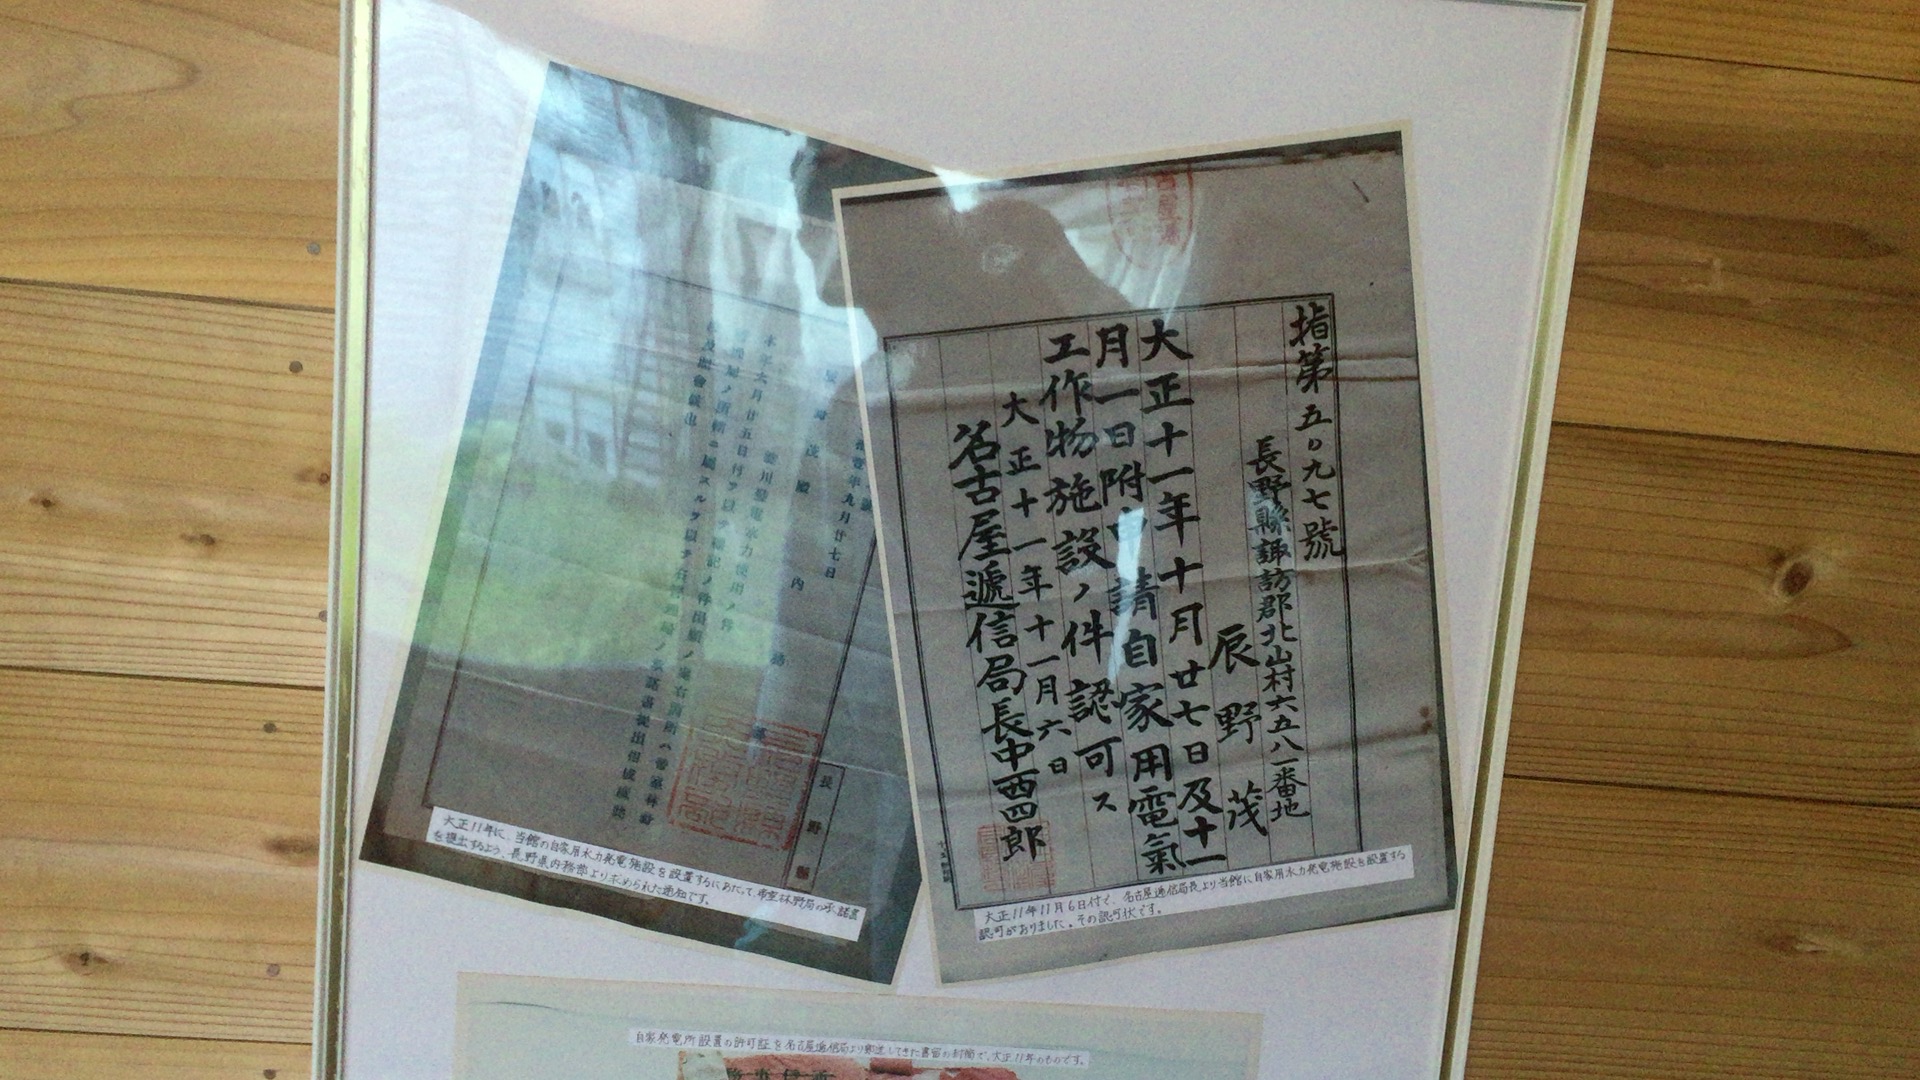 指第五〇九七號
長野縣諏訪郡北山村六五八一番地
辰野茂
大正十一年十月廿七日及十一
月一日附申請自家用電氣
工作物施設ノ件認可ス
大正十一年十一月六日
名古屋遞信局長中西四郎
大正11年11月6日付で、名古屋逓信局長より当館に自家用水力発電施設を設置する
認可がありました。その認可状です。
年九月廿七日
茂殿
内
川發電水力使用ノ件
本年六月廿五日付ヲ以テ標記ノ件出願ノ
ノ所轄ニ屬スルヲ以テ
長野縣
大正11年に、当館の自家用水力発電施設を設置するにあたって、帝室林野局の承諾書
を提出するよう、長野県内務部より求められた通知です。
自家発電所設置の許可証を名古屋逓信局より郵送してきた書留の封筒で、大正11年のものです。